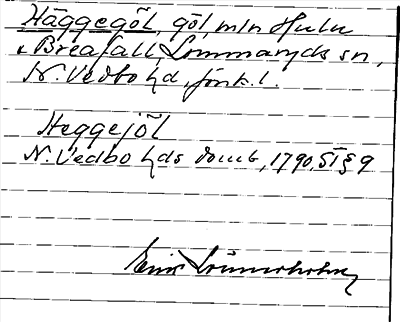 Häggegöl, göl, mln Hulu
i Breafall, Lommaryds sn,
N. Vedbo hd, Jönk. l.
Heggejöl
N. Vedbo hds domb, 1790, ST § 9
Erik